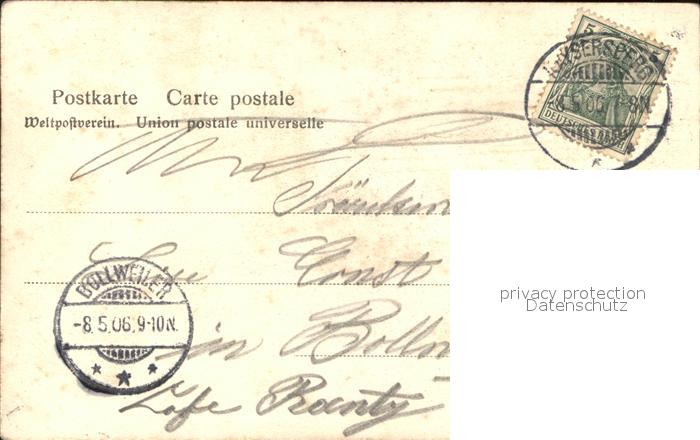 5
KAYSERSBERG
-8.5.06.7-8N.
DEUTSCHES REICH
Postkarte Carte postale
Weltpostverein. Union postale universelle
Fräulein
Ernst
privacy protection
Datenschutz
BOLLWEILER
-8.5.06.9-10N.
in Bollw